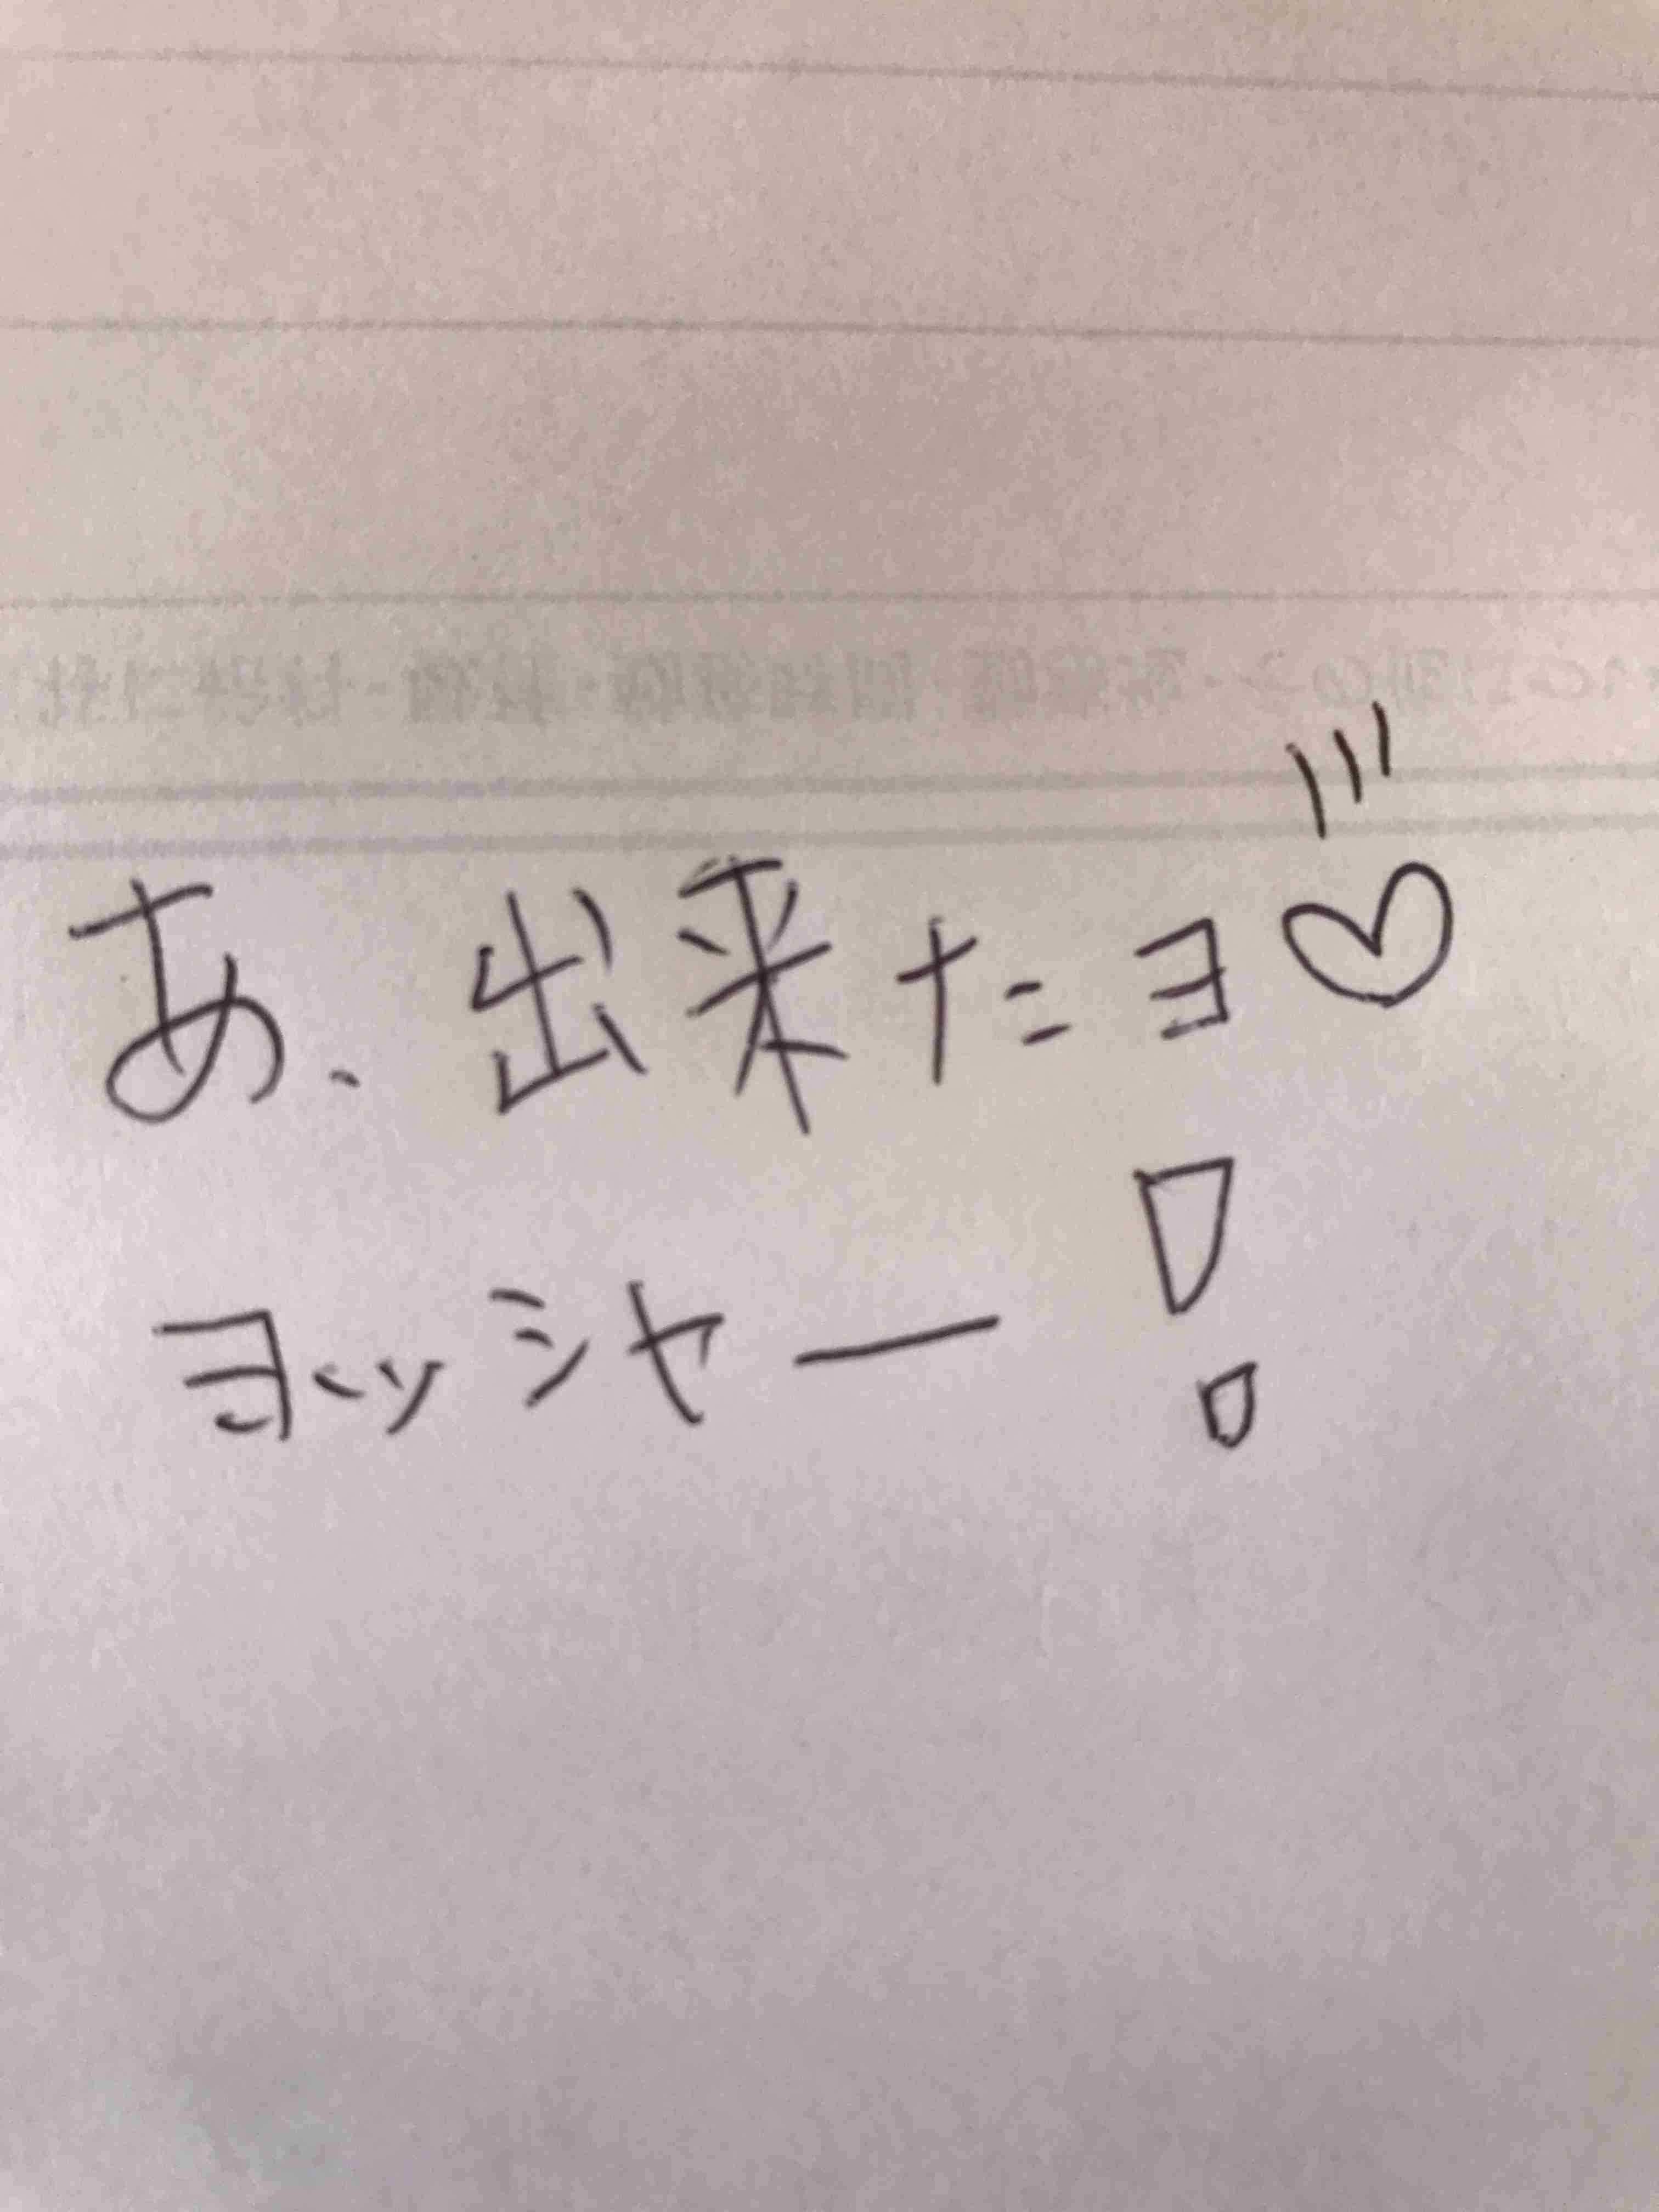 あ、出来たヨ♡
ヨッシャー!